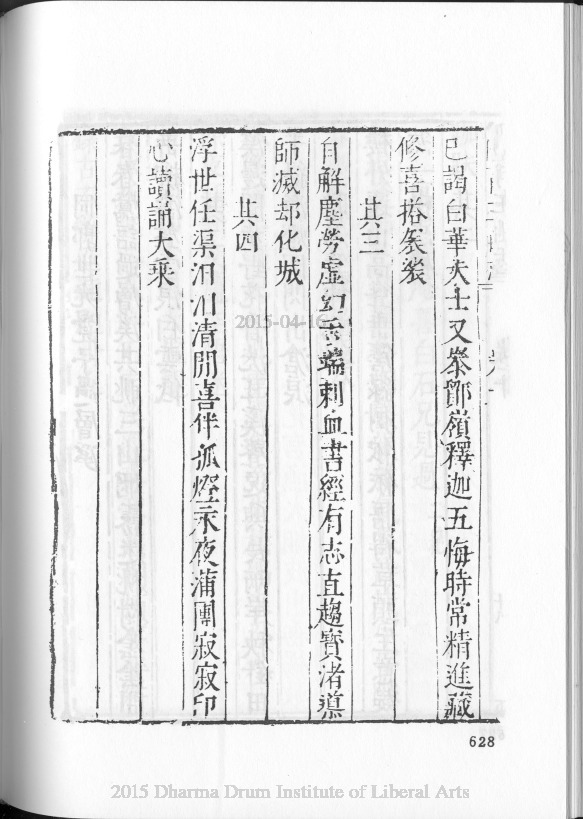 已謁白華大士又叅鄮嶺釋迦五悔時常精進藏
修喜搭袈裟
其三
自解塵勞虛幻 端刺血書經有志直趨寶渚導
師滅却化城
其四
浮世任渠汨汨清閒喜伴孤燈永夜蒲團寂寂印
心讀誦大乘
628
2015-04-16
2015 Dharma Drum Institute of Liberal Arts